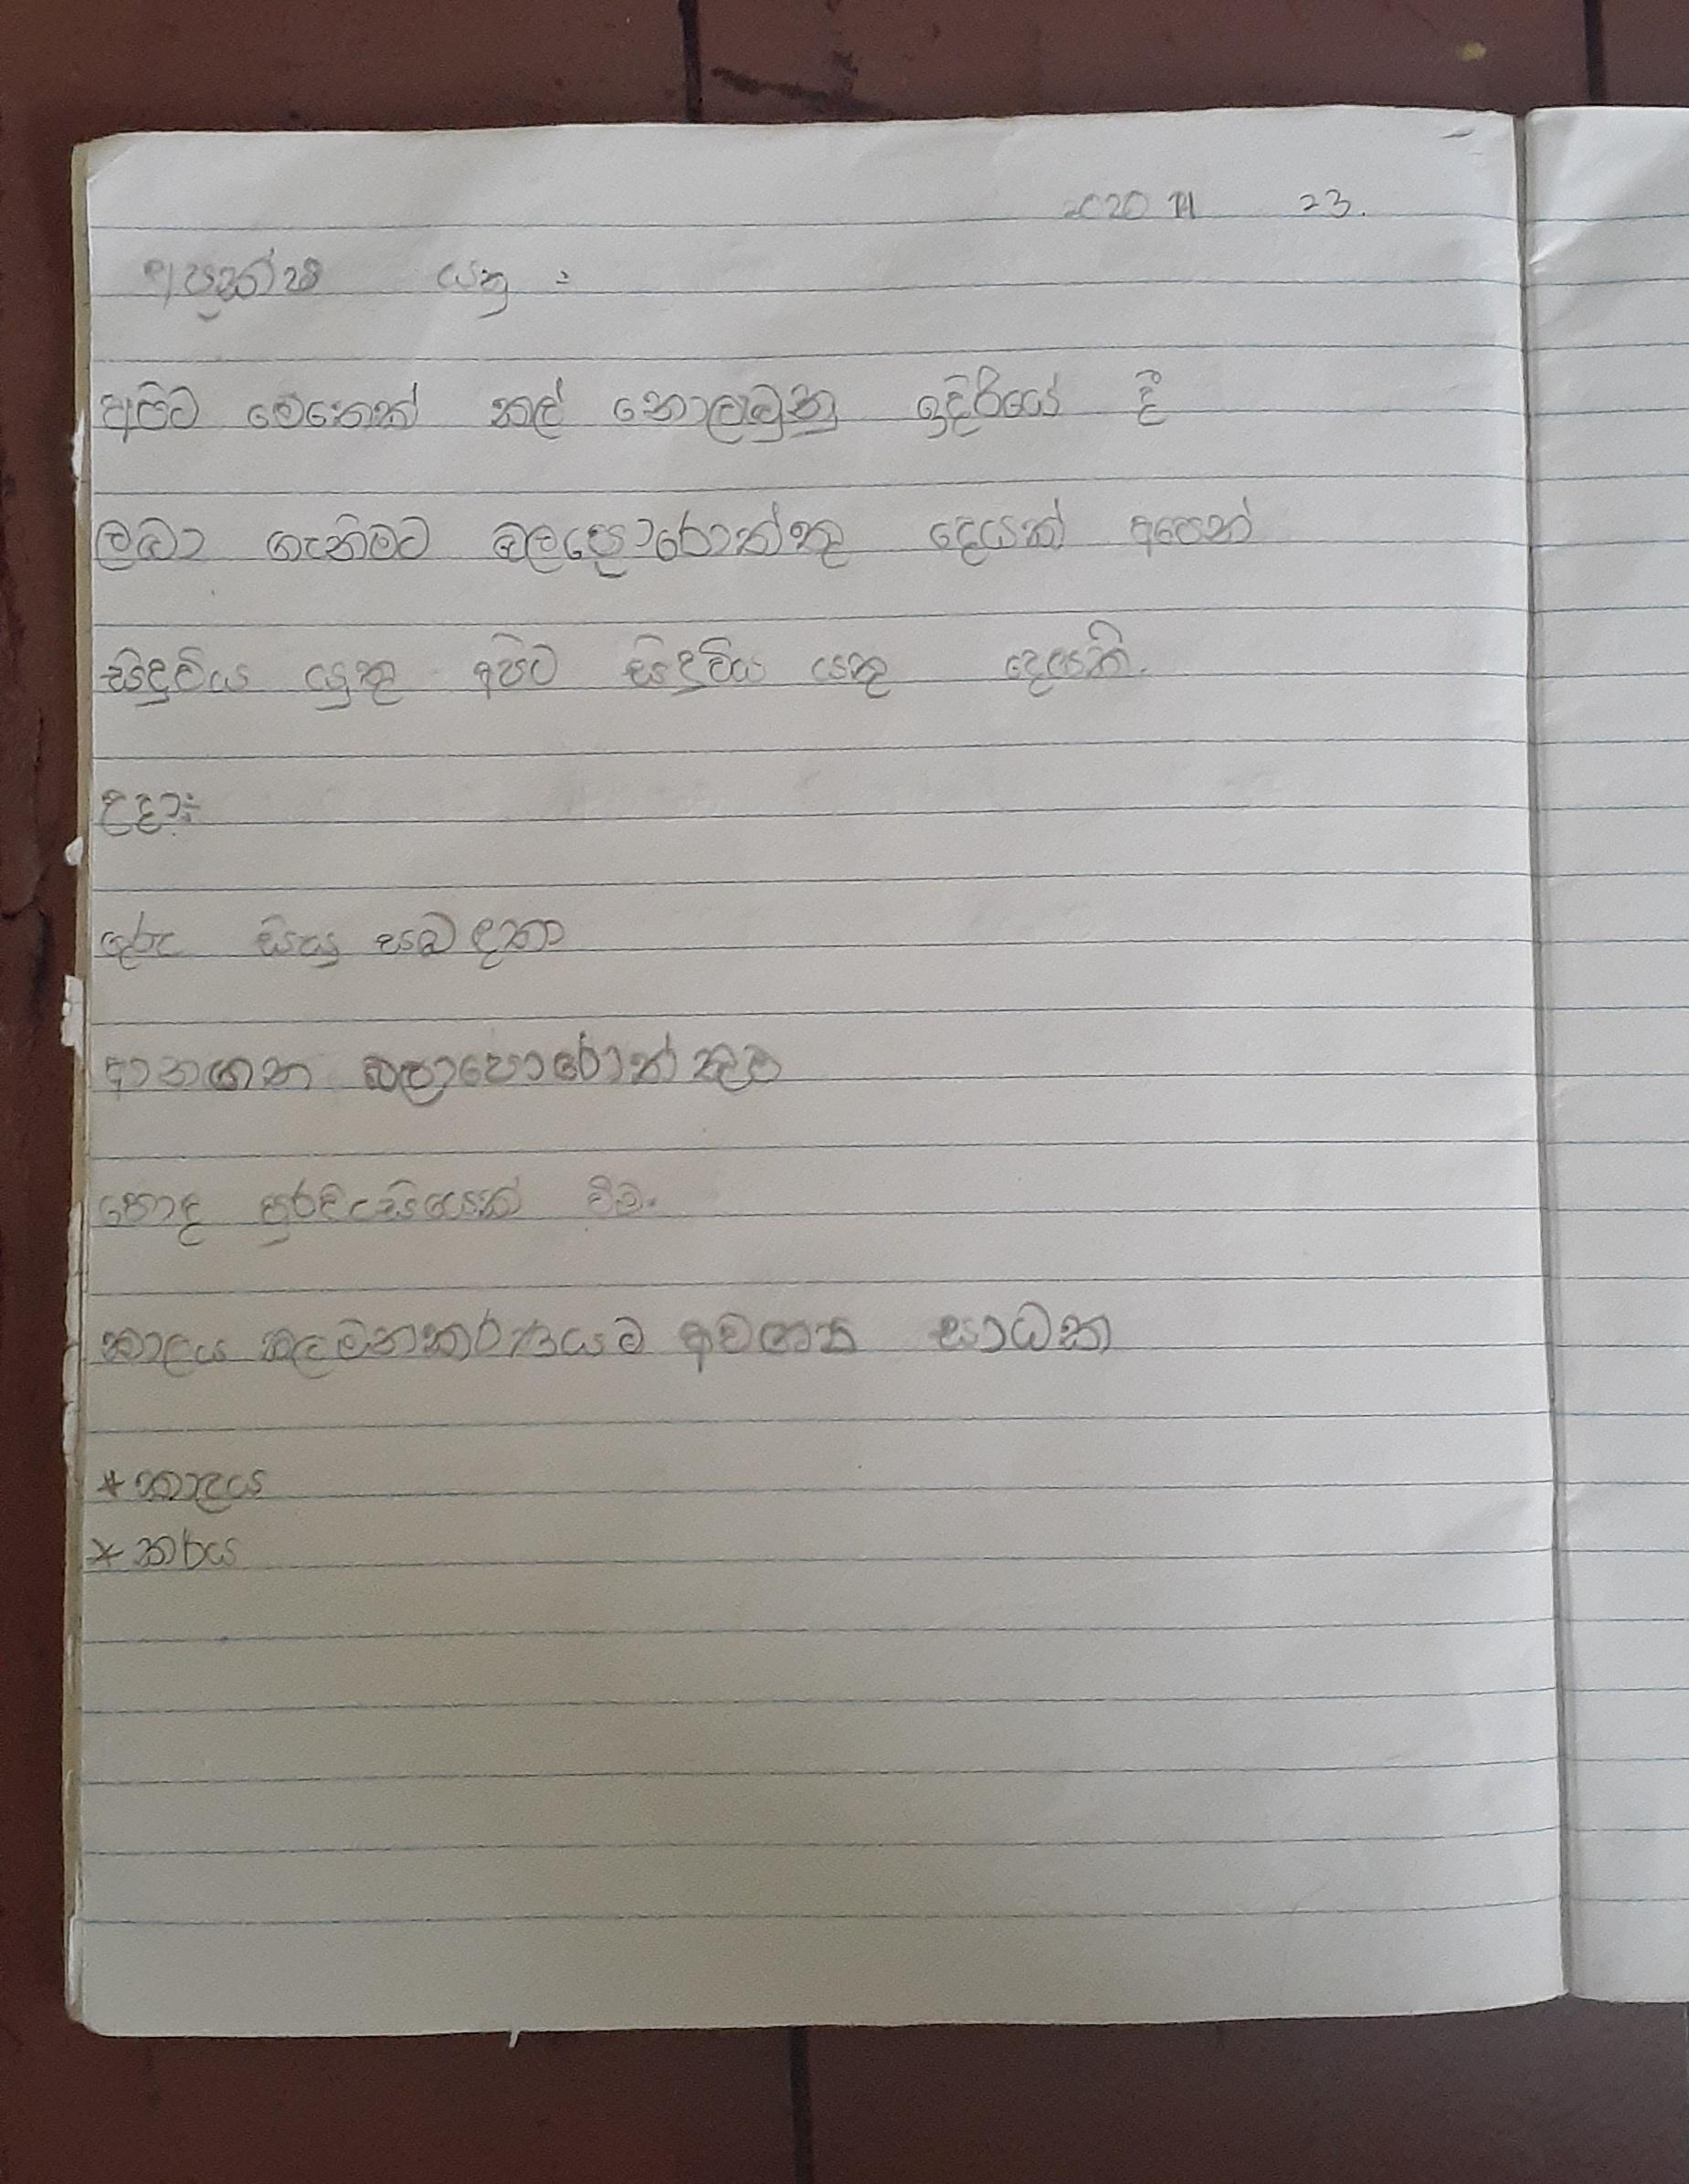 2020 11 23.
යනු :
අපිට මෙතෙක් කල් නොලැබුනු ඉදිරියේ දී
ලබා ගැනිමට බලපොරොත්තු දෙයක් අපෙන්
සිදුවිය යුතු අපිට සිදුවිය යතු දෙයකි.
උදා:-
ගුරු සිසු සබඳතා
බලාපොරොත්තුව
හොඳ පුරවැසියෙක් විම.
කාලය කලමනකරණයට අවශ්‍ය සාධක
* කාලය
* කර්ය